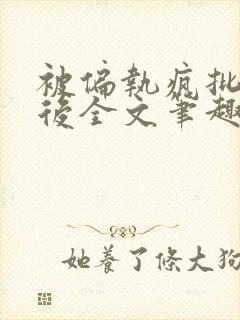 被偏執瘋批
後全文筆趣
她養了條大狗